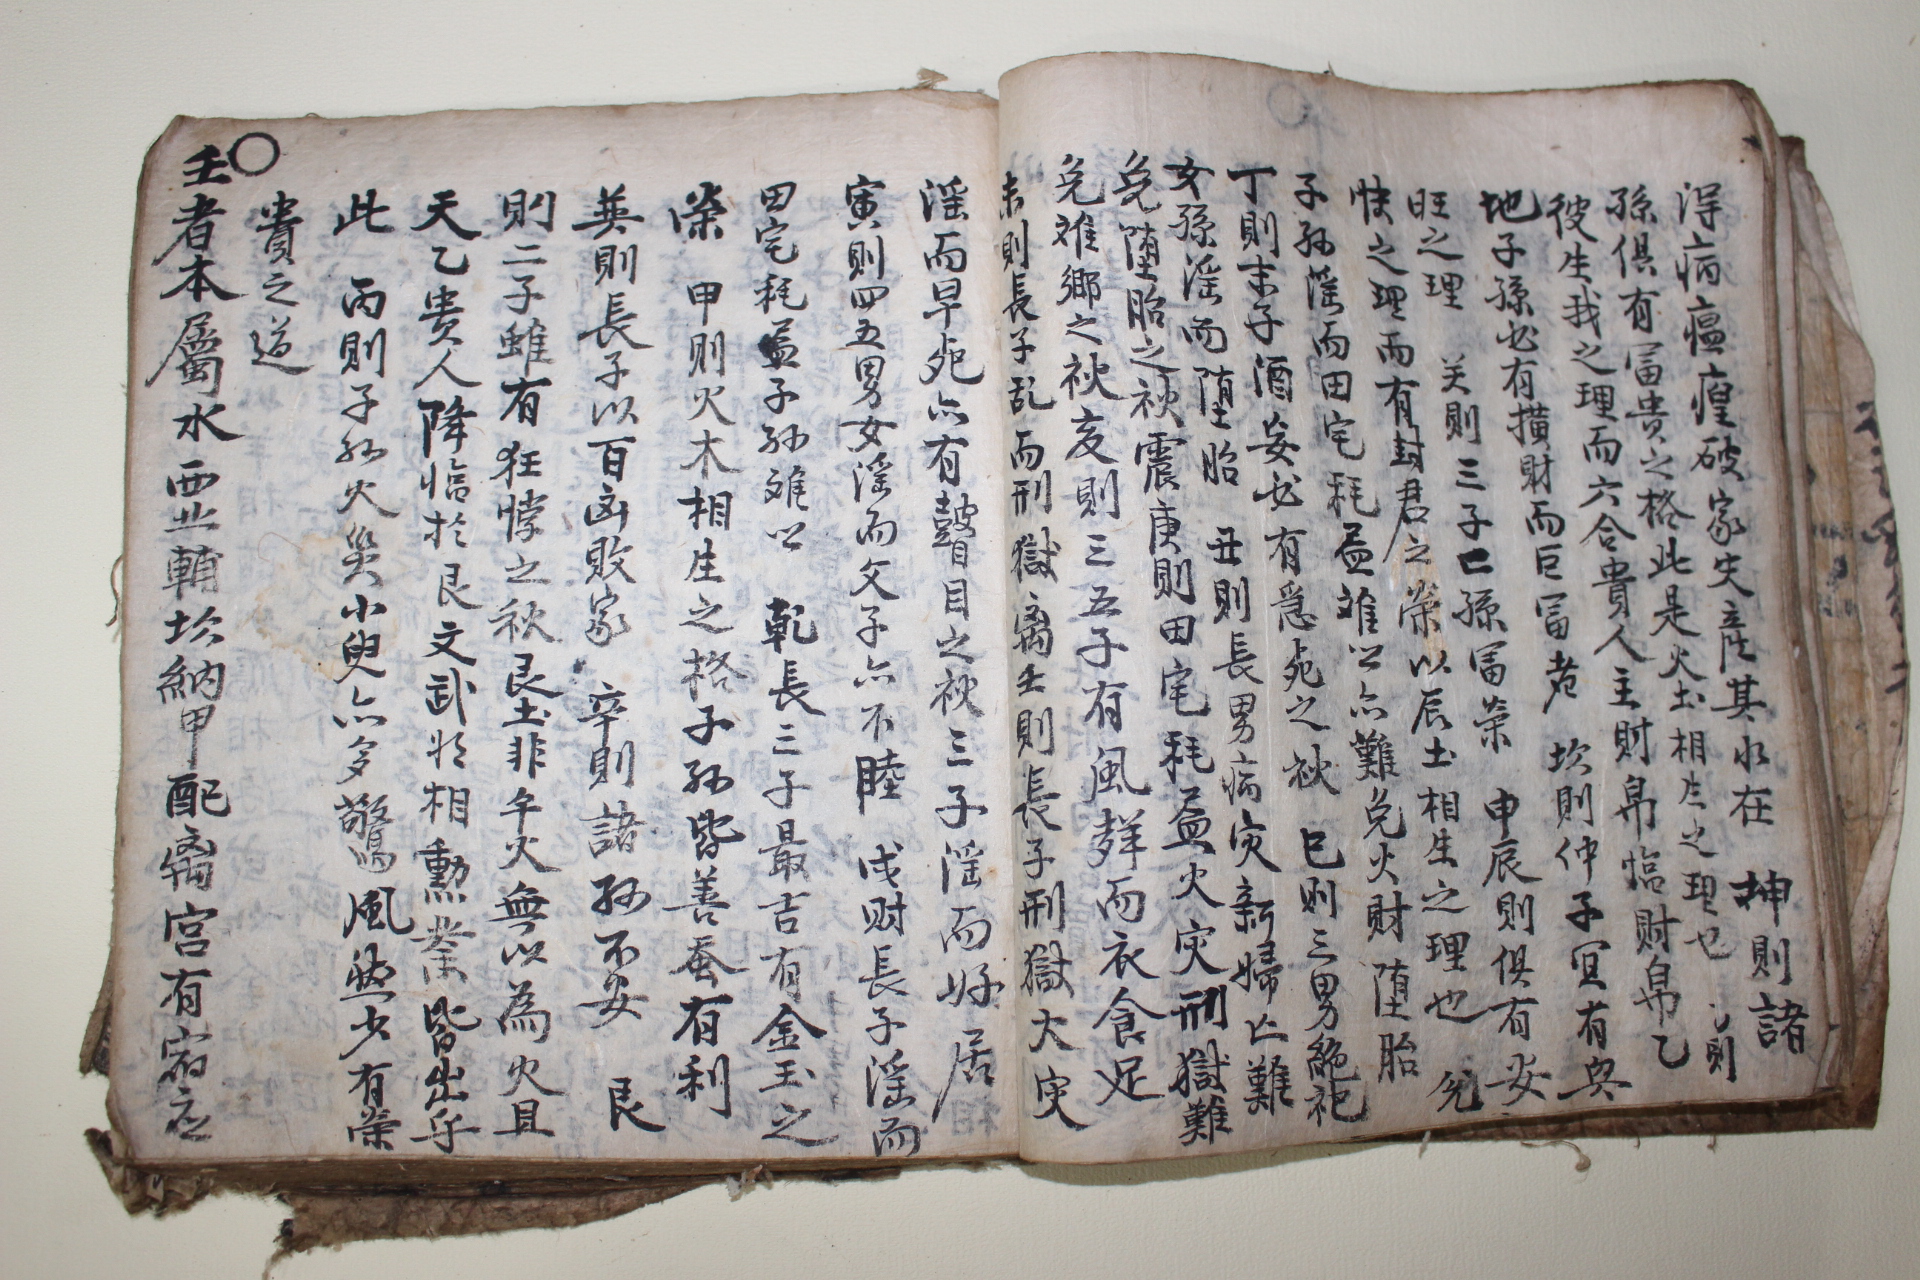 得病瘟癀破家失産其水在 坤則諸
孫俱有冨貴之格此是火土相生之理也 則
彼生我之理而六合貴人主財帛臨財帛乙
地子孫必有橫財而巨冨者 坎則仲子冝有與
旺之理 关則三子亡孫冨荣 申辰則俱有妄
快之理而有封君之荣以辰土相生之理也 兌
子孫滛而田宅耗益难以亦難免火財 堕胎
丁則末子酒妄必有惡死之秧 巳則三男絶祀
女孫滛而堕胎 丑則長男病灾新婦亡難
免堕胎之秧震庚則田宅耗益火灾刑獄難
免难鄉之秧亥則三五子有風牂而衣食足
未則長子乱而刑獄离壬則長子刑獄大灾
滛而早死亦有瞽目之秧三子滛而好居
寅則四五男女滛而父子亦不睦 戌財長子滛而
田宅耗益子孫难以 乾長三子最吉有金玉之
荣 甲則火木相生之格子孫皆善蚕有利
英則長子以百凶敗家 辛則諸孫不安 艮
則二子雖有狂悖之秋艮土非午火無以為火且
天乙貴人降临於艮文武将相勳業皆出乎
此 丙則子孫火災小兒亦多驚風然少有荣
貴之道
○壬者本屬水西北輔坎納甲配离宮有宿应